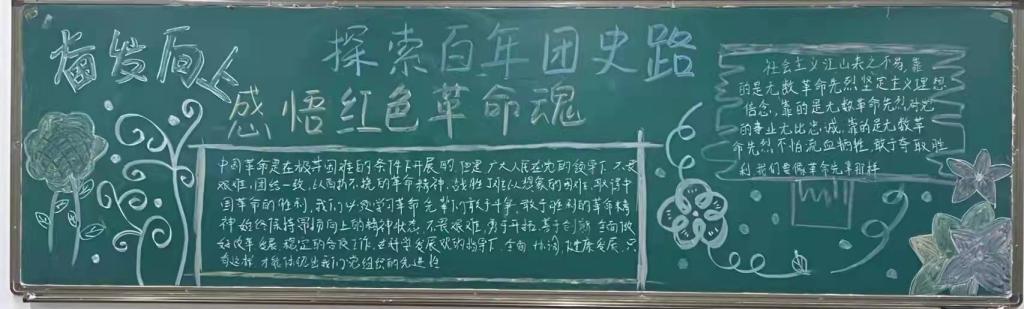 奋发向上
探索百年团史路
感悟红色革命魂
中国革命是在极其困难的条件下开展的,但是广大人民在党的领导下,不畏
艰难,团结一致,以百折不挠的革命精神,战胜了难以想象的困难,取得中
国革命的胜利,我们必须学习革命先辈们敢于斗争,敢于胜利的革命精
神,始终保持昂扬向上的精神状态,不畏艰难,勇于开拓,善于创新,全面做
好改革发展稳定的各项工作,在科学发展观的指导下,全面 协调,健康发展,只
有这样,才能体现出我们党组织的先进性
社会主义江山来之不易,靠
的是无数革命先烈坚定主义理想
信念,靠的是无数革命先烈对党
的事业无比忠诚,靠的是无数革
命先烈不怕流血牺牲,敢于夺取胜
利 我们要像革命先辈那样